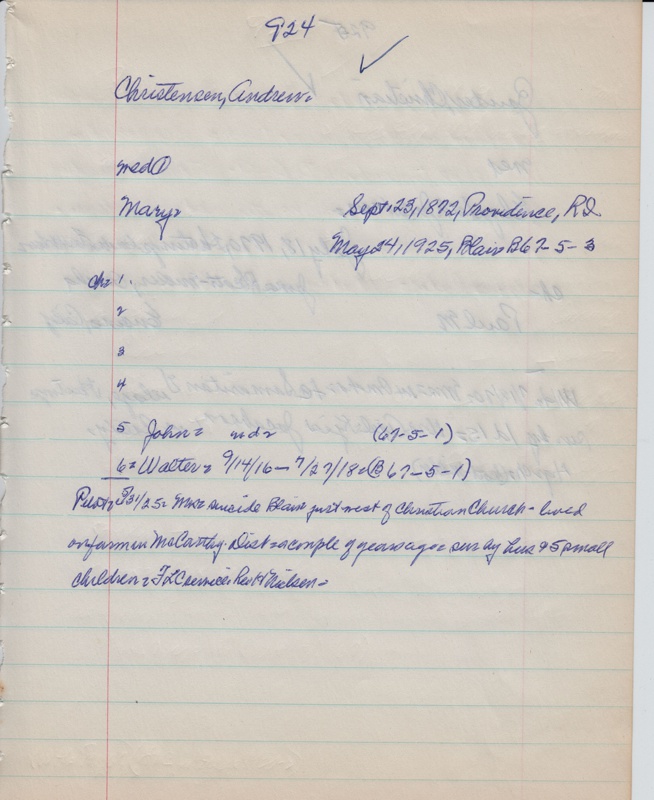 924
Christensen, Andrew=
med ①
Mary= Sept. 23, 1872, Providence, RI
May 24, 1925, Blair B 67-5-3
ch= 1.
2
3
4
5 John= md= (67-5-1)
6= Walter= 9/14/16 — 7/27/18= (B 67-5-1)
Pilot= 5/31/25= Mrs= suicide Blair just west of Christian Church - lived
on farm in McCarthy Dist= a couple of years ago= surv by hus & 5 small
children= FLC service; Rev H Nielsen=